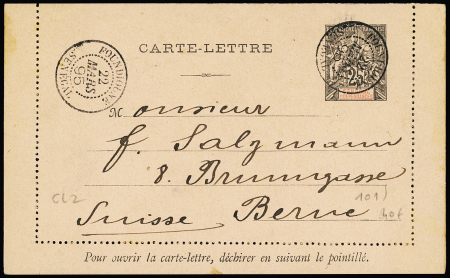 CARTE-LETTRE
FOUNDIOUGNE
22
MARS
95
SÉNÉGAL
25
Monsieur
f. Salzmann
8. Brunngasse
Suisse Berne
CL2
101)
40F
Pour ouvrir la carte-lettre, déchirer en suivant le pointillé.